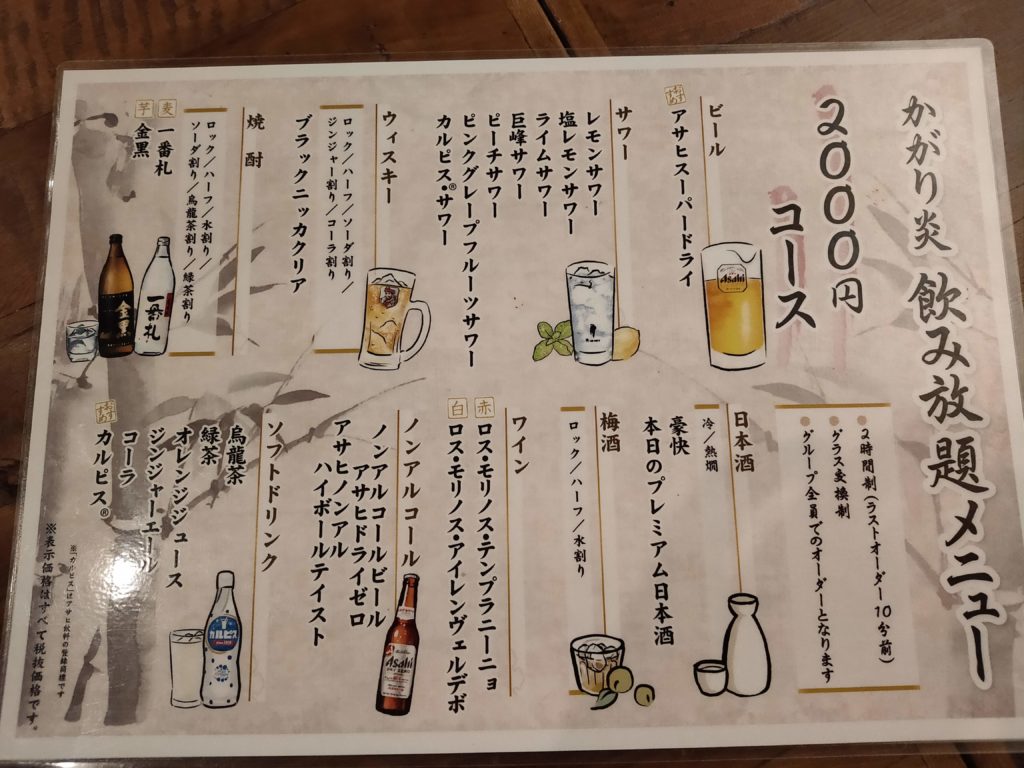 かがり炎 飲み放題メニュー
2000円
コース
●2時間制(ラストオーダー10分前)
●グラス交換制
●グループ全員でのオーダーとなります
ビール
アサヒスーパードライ
Asahi
サワー
レモンサワー
塩レモンサワー
ライムサワー
巨峰サワー
ピーチサワー
ピンクグレープフルーツサワー
カルピス®サワー
ウィスキー
ロック/ハーフ/ソーダ割り/
ジンジャー割り/コーラ割り
ブラックニッカクリア
焼酎
ロック/ハーフ/水割り/
ソーダ割り/烏龍茶割り/緑茶割り
麦 一番札
芋 金黒
一番札
金黒
日本酒
冷/熱燗
豪快
本日のプレミアム日本酒
梅酒
ロック/ハーフ/水割り
ワイン
赤 ロス・モリノス・テンプラニーニョ
白 ロス・モリノス・アイレンヴェルデボ
ノンアルコール
ノンアルコールビール
アサヒドライゼロ
アサヒノンアル
ハイボールテイスト
Asahi
ソフトドリンク
烏龍茶
緑茶
オレンジジュース
ジンジャーエール
コーラ
カルピス®
カルピス
※「カルピス」はアサヒ飲料の登録商標です
※表示価格はすべて税抜価格です。